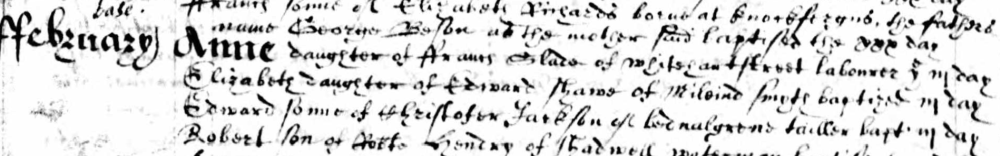 base ffranc sonne of Elizabeth Richards borne at knockfergus, the fathers
name George Beson as the mother said baptised the xxx day
ffebruary Anne daughter of ffrancis Slade of whitehart street labourer ye iij day
Elizabeth daughter of Edward Shawe of Mileind smyth baptized iij day
Edward sonne of Christofer Jackson of bednalgrene tailler bapt iij day
Robert son of Hendry of Shadwell waterman